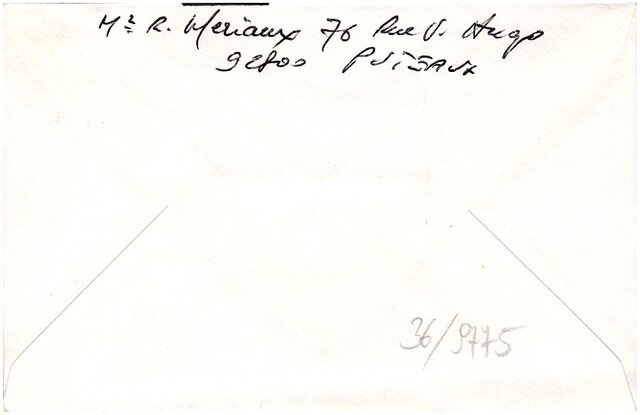 Mr R. Meriaux 76 Rue V. Hugo
92800 PUTEAUX
36/9775